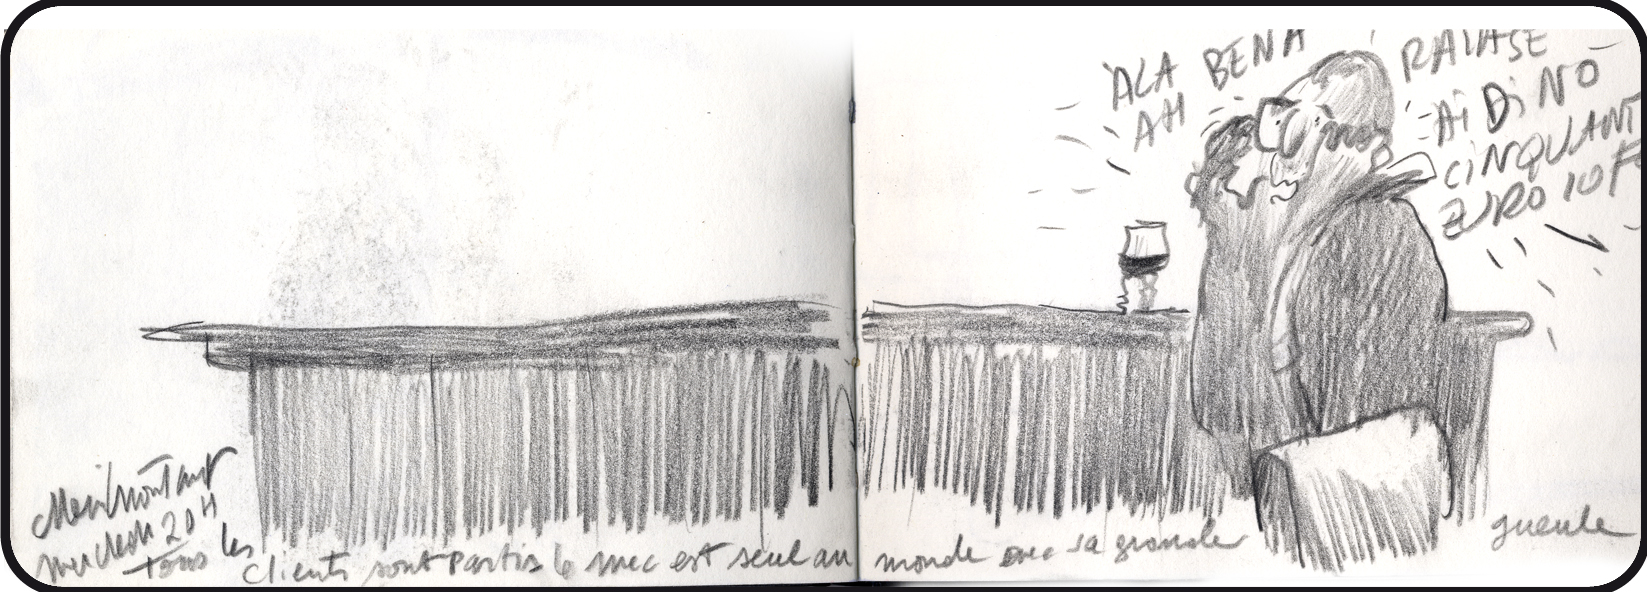 ALA BENA
AH
RAIASE
Ai Di NO
CiNQUANT
EURO 10 F
Menilmontant
mercredi 20H
tous les
clients sont partis le mec est seul au monde avec sa grande gueule